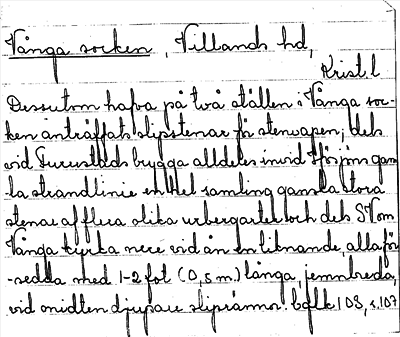 Vånga socken, Villands hd,
Kristl
Dessutom hafva på två ställen i Vånga soc-
ken anträffats slipstenar för stenvapen, dels
vid Furustads brygga alldeles invid Ifösjöns gam
la strandlinie en hel samling ganska stora
stenar af flera olika urbergarter och dels S Vom
Vånga kyrka nere vid ån en liknande, alla för
-sedda med 1-2 fot (0,5 m.) långa, jemnbreda,
vid midten djupare sliprännor. bqlk 108, s. 107